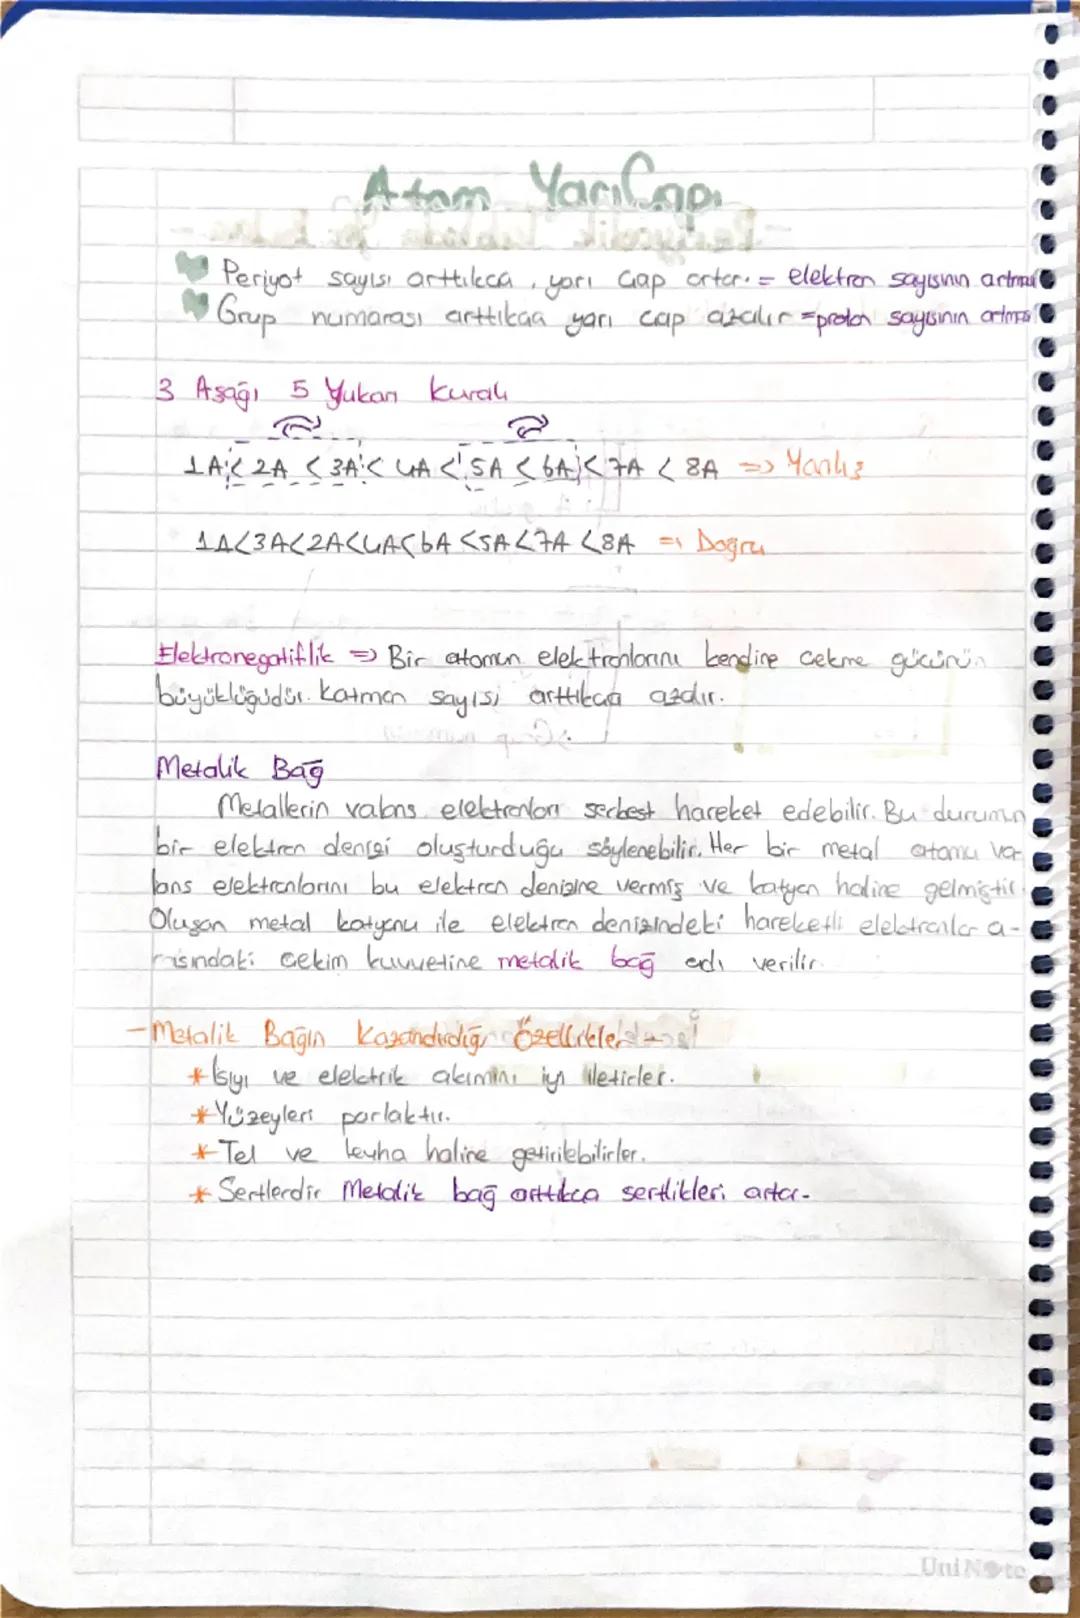 Atom Yarı Çapı
Periyot sayısı arttıkca, yarı çap artar. = elektron sayısının artması
Grup numarası arttıkca yarı cap azalır =proton sayısının artması
3 Aşağı 5 Yukarı kuralı
1A < 2A < 3A < 4A < 5A < 6A < 7A < 8A => Yanlış
1A<3A<2A<4A<6A<5A<7A<8A => Doğru
Elektronegatiflik => Bir atomun elektronlarını kendine cekme gücünün
büyüklüğüdür. Katman sayısı arttıkca azalır.
Metalik Bağ
Metallerin valans elektronları serbest hareket edebilir. Bu durumun
bir elektron denizi oluşturduğu söylenebilir. Her bir metal atomu va-
lans elektronlarını bu elektron denizine vermiş ve katyon haline gelmiştir.
Oluşan metal katyonu ile elektron denizindeki hareketli elektronlar a-
rasındaki çekim kuvvetine metalik bağ adı verilir.
- Metalik Bağın Kazandırdığı Özellikler
* Isıyı ve elektrik akımını iyi iletirler.
* Yüzeyleri parlaktır.
* Tel ve levha haline getirilebilirler.
* Sertlerdir Metalik bağ arttıkca sertlikleri artar.
UniNote